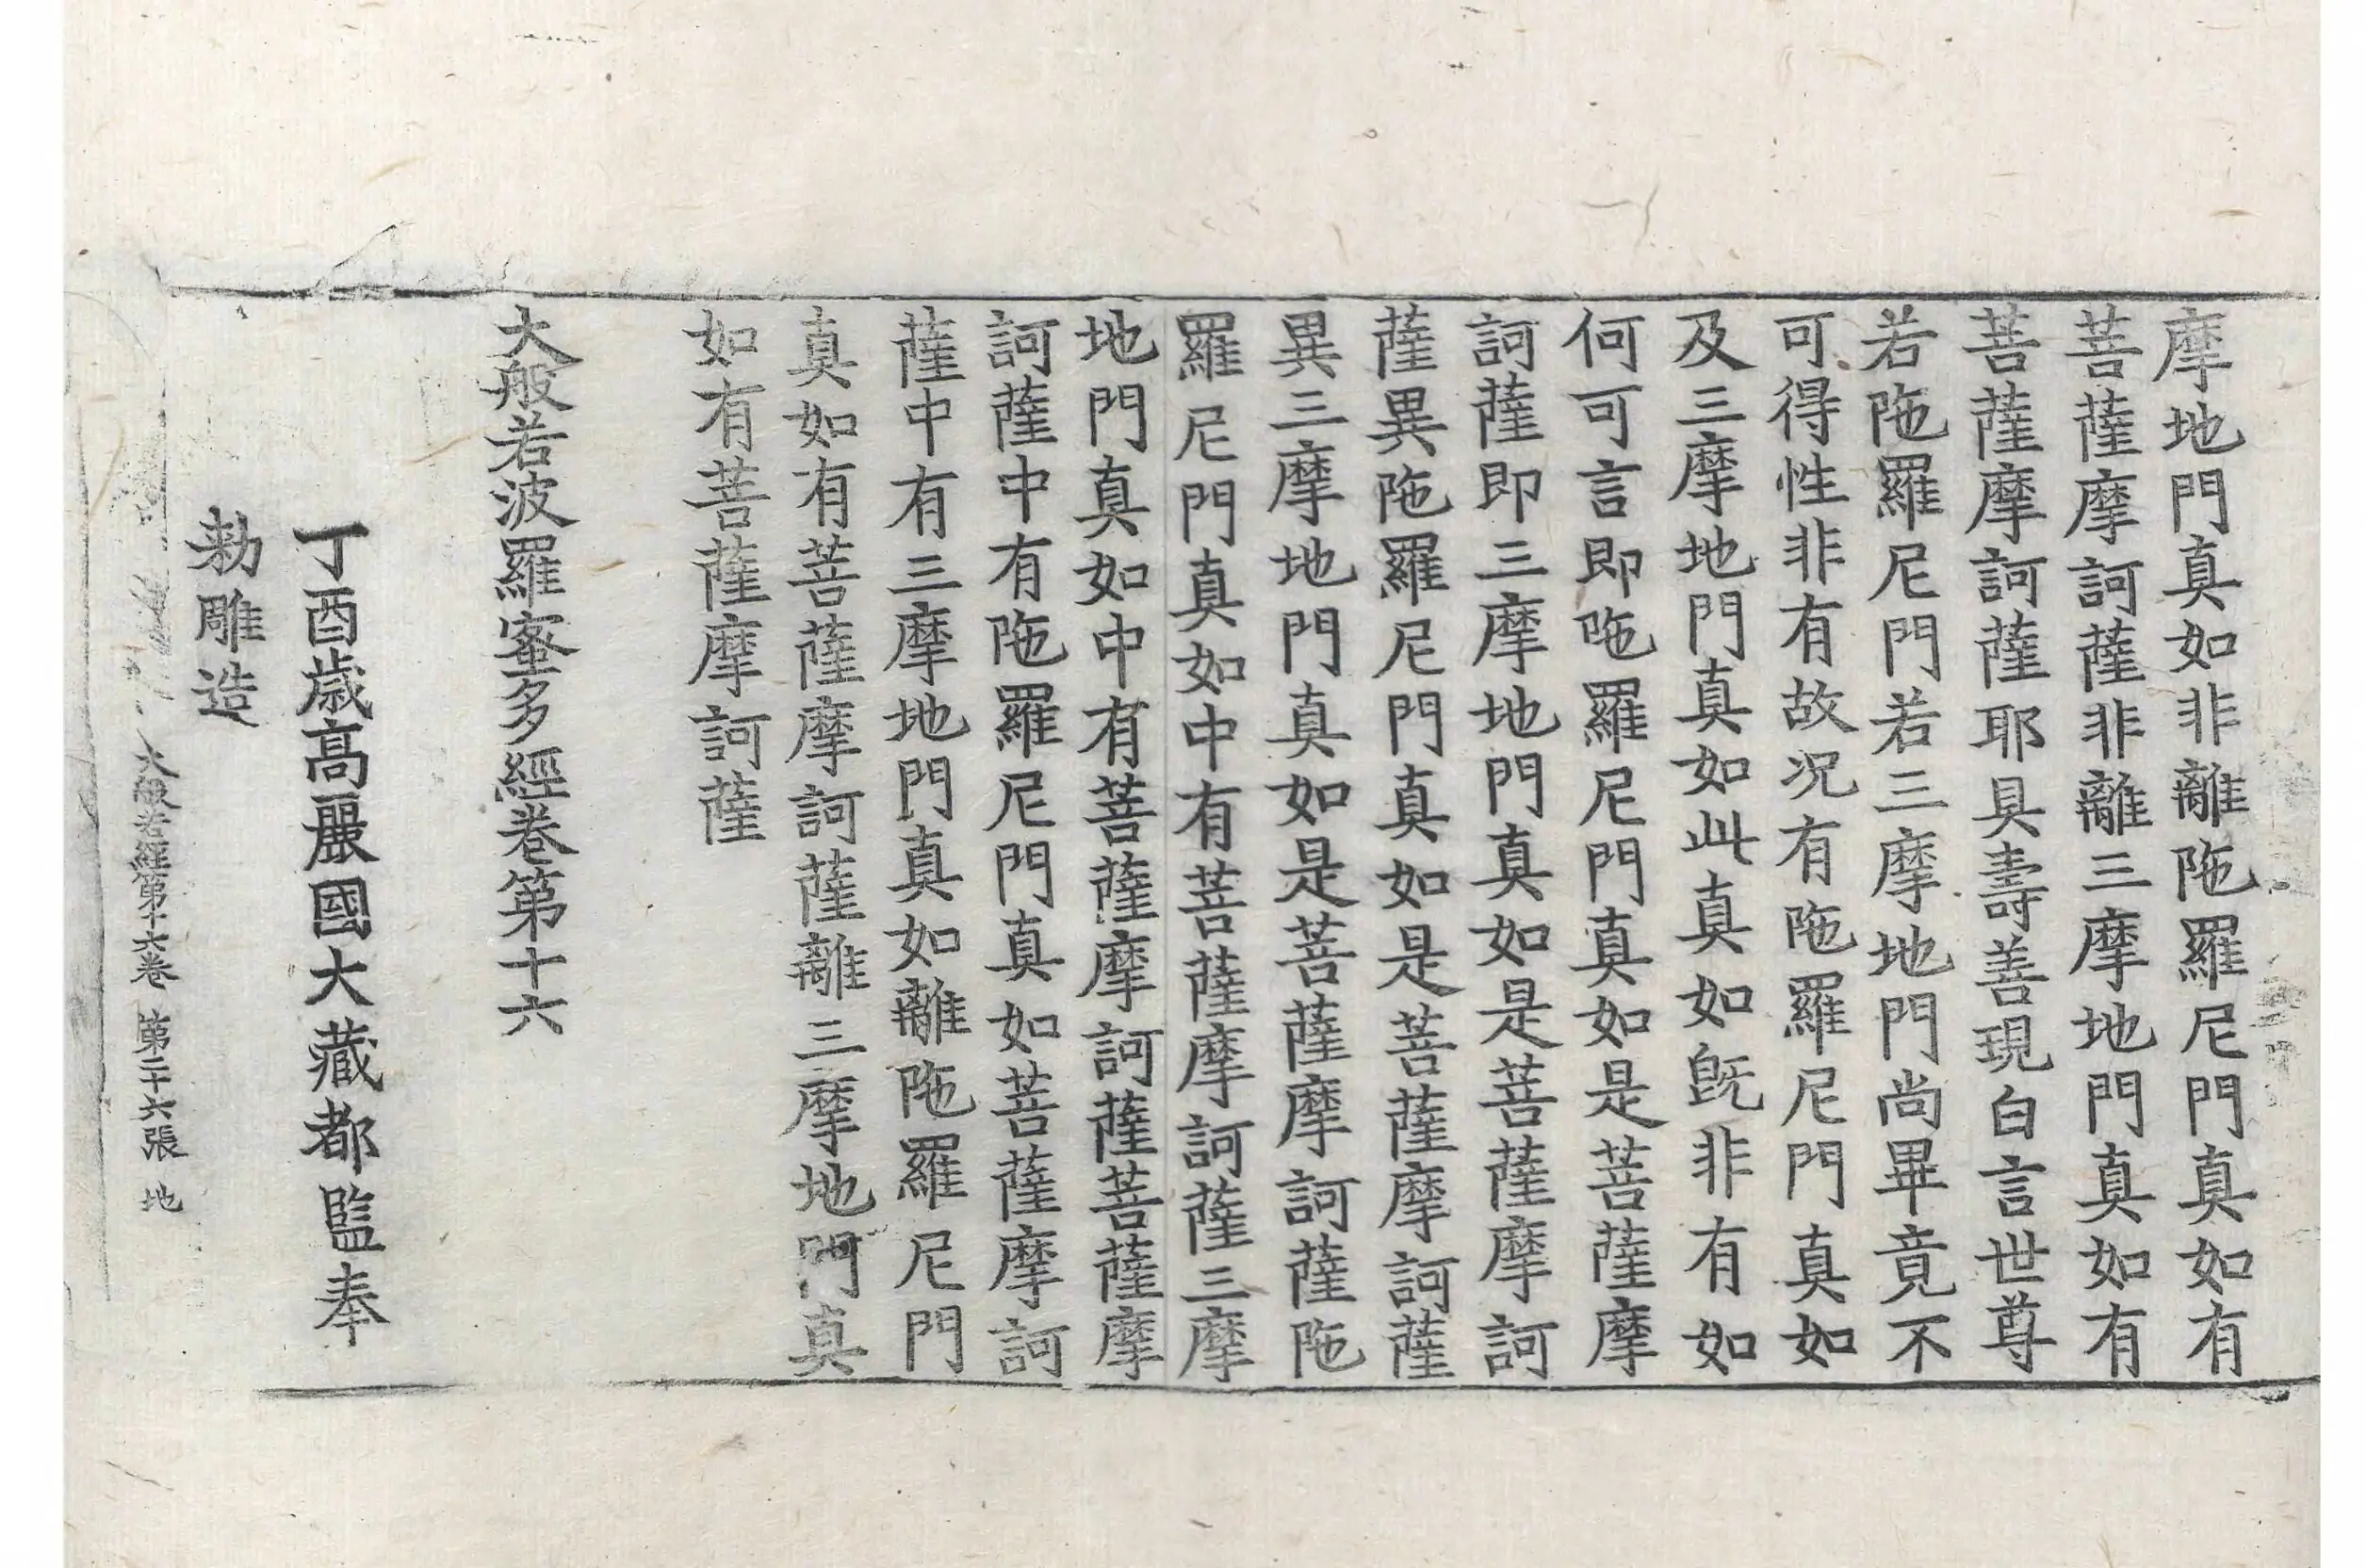 摩地門真如非離陁羅尼門真如有
菩薩摩訶薩非離三摩地門真如有
菩薩摩訶薩耶具壽善現白言世尊
若陁羅尼門若三摩地門尚畢竟不
可得性非有故况有陁羅尼門真如
及三摩地門真如此真如旣非有如
何可言即陁羅尼門真如是菩薩摩
訶薩即三摩地門真如是菩薩摩訶
薩異陁羅尼門真如是菩薩摩訶薩
異三摩地門真如是菩薩摩訶薩陁
羅尼門真如中有菩薩摩訶薩三摩
地門真如中有菩薩摩訶薩菩薩摩
訶薩中有陁羅尼門真如菩薩摩訶
薩中有三摩地門真如離陁羅尼門
真如有菩薩摩訶薩離三摩地門真
如有菩薩摩訶薩
大般若波羅蜜多經卷第十六
丁酉歳高麗國大藏都監奉
勑雕造
大般若經第十六卷 第二十六張 地